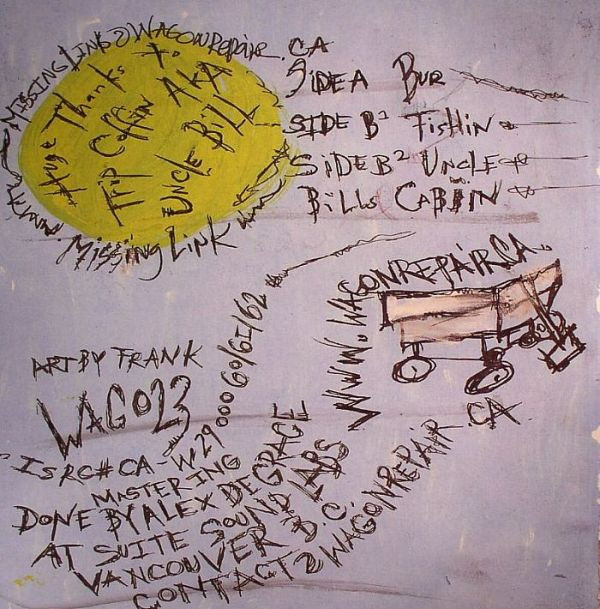 MissingLink@WagonRepair.CA
Huge Thanks to
Trip Coffin AKA
Uncle Bill
Missing Link
SIDE A Bur
SIDE B¹ Fishin
SIDE B² Uncle
Bills CABBIN
WWW.WAGONREPAIR.CA
ART BY FRANK
WAG023
ISRC# CA-W29 00060/61/62
MASTERING
DONE BY ALEX DEGRACE
AT SUITE SOUND LABS
VANCOUVER B.C.
CONTACT@WAGONREPAIR.CA